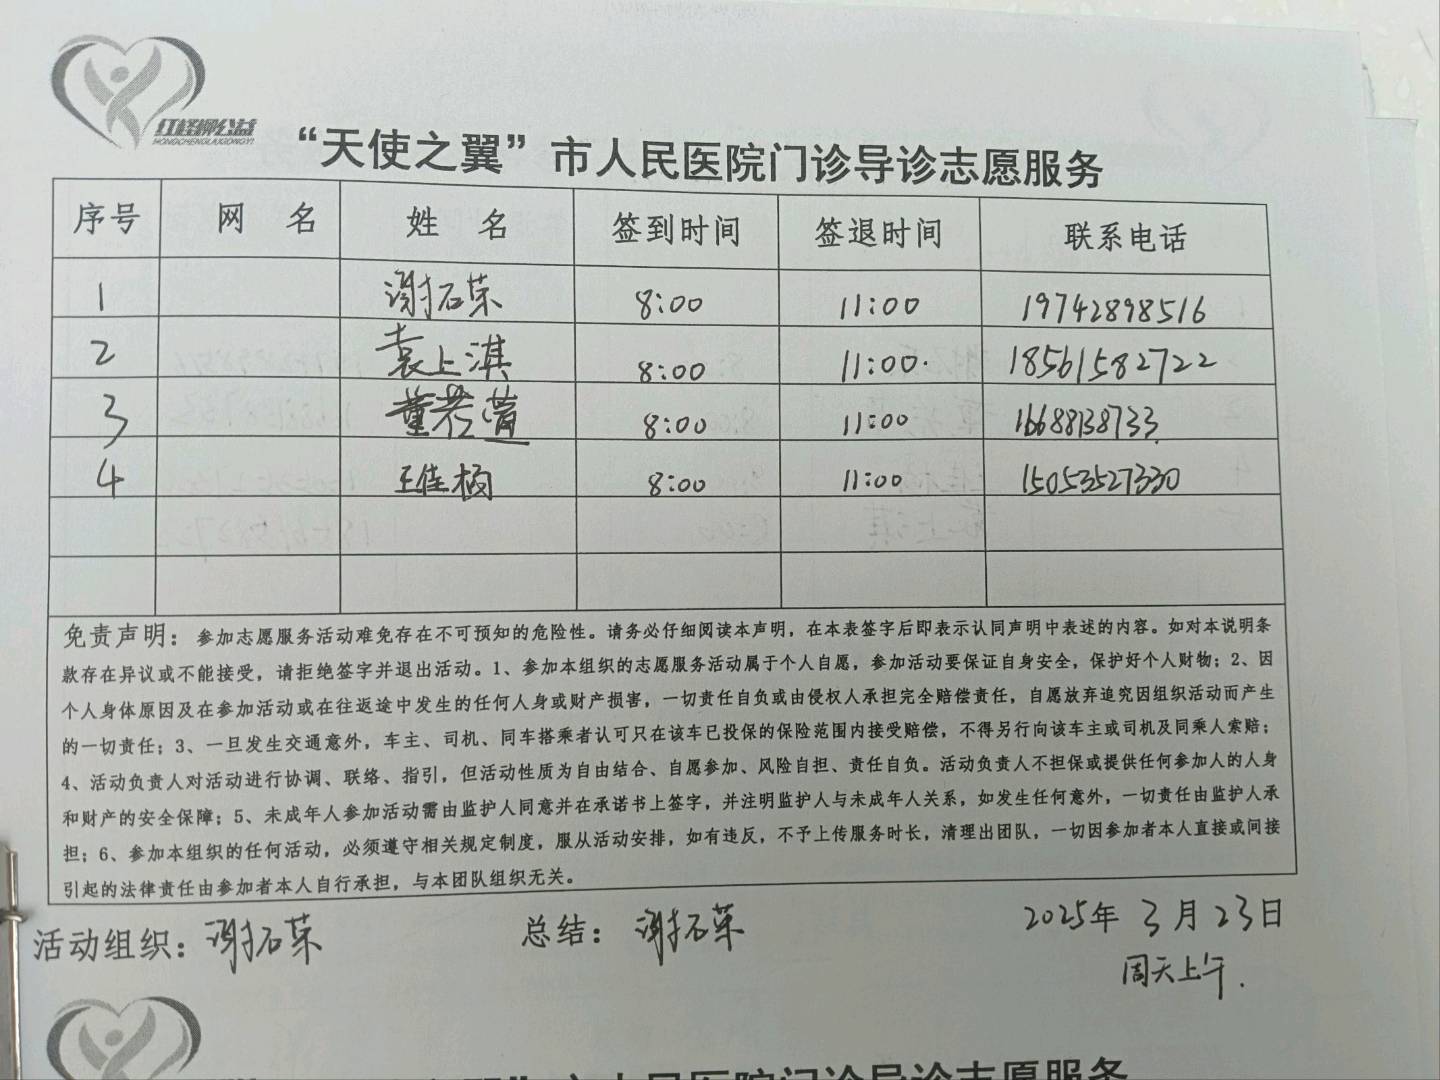 红橙柳公益
HONGCHENGLIUGONGYI
“天使之翼”市人民医院门诊导诊志愿服务
序号 网 名 姓 名 签到时间 签退时间 联系电话
1 谢石荣 8:00 11:00 19742898516
2 袁上淇 8:00 11:00. 18561582722
3 董 8:00 11:00 16688138733.
4 王佳杨 8:00 11:00 15053527330
免责声明：参加志愿服务活动难免存在不可预知的危险性。请务必仔细阅读本声明，在本表签字后即表示认同声明中表述的内容。如对本说明条
款存在异议或不能接受，请拒绝签字并退出活动。1、参加本组织的志愿服务活动属于个人自愿，参加活动要保证自身安全，保护好个人财物；2、因
个人身体原因及在参加活动或在往返途中发生的任何人身或财产损害，一切责任自负或由侵权人承担完全赔偿责任，自愿放弃追究因组织活动而产生
的一切责任；3、一旦发生交通意外，车主、司机、同车搭乘者认可只在该车已投保的保险范围内接受赔偿，不得另行向该车主或司机及同乘人索赔；
4、活动负责人对活动进行协调、联络、指引，但活动性质为自由结合、自愿参加、风险自担、责任自负。活动负责人不担保或提供任何参加人的人身
和财产的安全保障；5、未成年人参加活动需由监护人同意并在承诺书上签字，并注明监护人与未成年人关系，如发生任何意外，一切责任由监护人承
担；6、参加本组织的任何活动，必须遵守相关规定制度，服从活动安排，如有违反，不予上传服务时长，清理出团队，一切因参加者本人直接或间接
引起的法律责任由参加者本人自行承担，与本团队组织无关。
活动组织：谢石荣 总结：谢石荣 2025年 3月 23日
周天上午.
市人民医院门诊导诊志愿服务